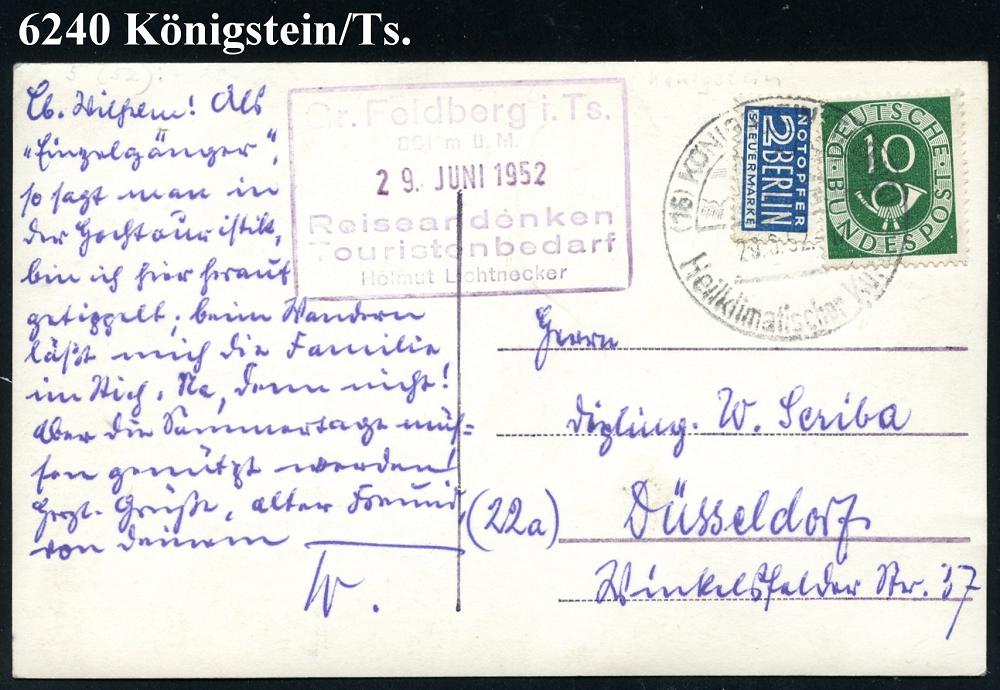 6240 Königstein/Ts.
Lb. Wilhelm! Als
"Einzelgänger",
so sagt man in
der Hochtouristik,
bin ich hier herauf
getippelt; beim Wandern
läßt mich die Familie
im Stich. Na, denn nicht!
Aber die Sommertage müs=
sen genützt werden!
Herzl. Grüße, alter Freund,
von deinem
W.
Gr. Feldberg i. Ts.
881 m ü. M.
29. JUNI 1952
Reiseandenken
Touristenbedarf
Helmut Lichtnecker
(16) KÖNIG
Heilklimatischer
NOTOPFER
2 BERLIN
STEUERMARKE
DEUTSCHE
BUNDESPOST
10
Herrn
Dipling. W. Scriba
(22a) Düsseldorf
Winkelsfelder Str. 37